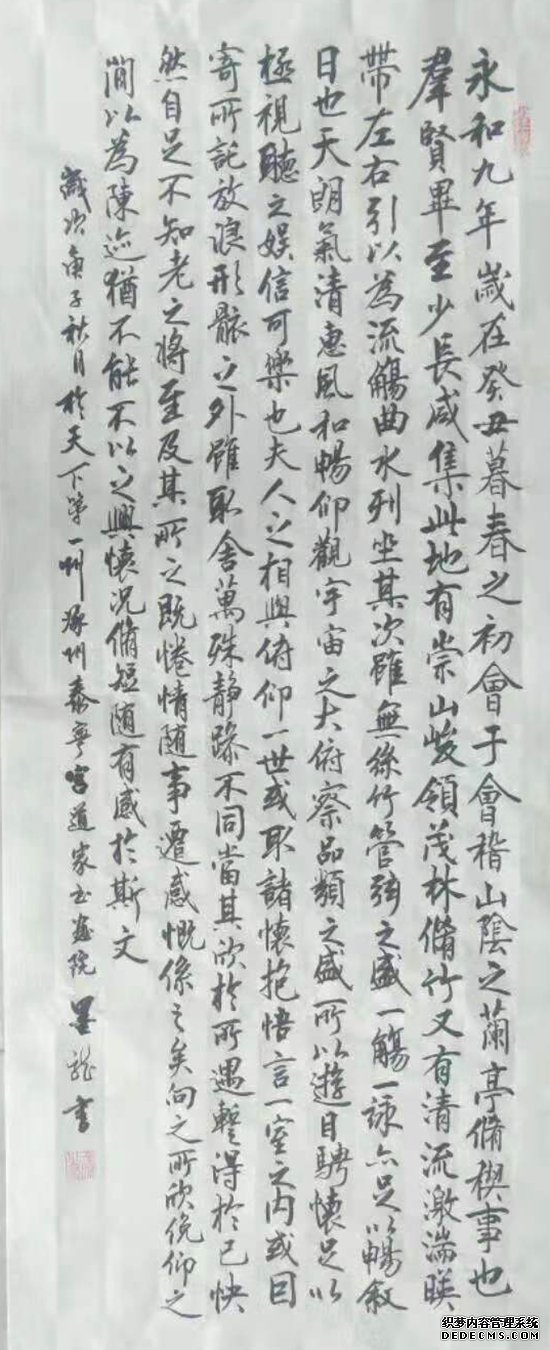 永和九年歲在癸丑暮春之初會于會稽山陰之蘭亭脩稧事也
羣賢畢至少長咸集此地有崇山峻領茂林脩竹又有清流激湍暎
帶左右引以為流觴曲水列坐其次雖無絲竹管弦之盛一觴一詠亦足以暢敘
日也天朗氣清惠風和暢仰觀宇宙之大俯察品類之盛所以遊目騁懷足以
極視聽之娛信可樂也夫人之相與俯仰一世或取諸懷抱悟言一室之內或因
寄所託放浪形骸之外雖取舍萬殊靜躁不同當其欣於所遇暫得於己快
然自足不知老之將至及其所之既惓情随事遷感慨係之矣向之所欣俛仰之
閒以為陳迹猶不能不以之興懷況脩短随有感於斯文
歲次庚子秋月於天下第一州涿州泰寧宮道家书画院墨龍書
织梦内容管理系统
DEDECMS.COM